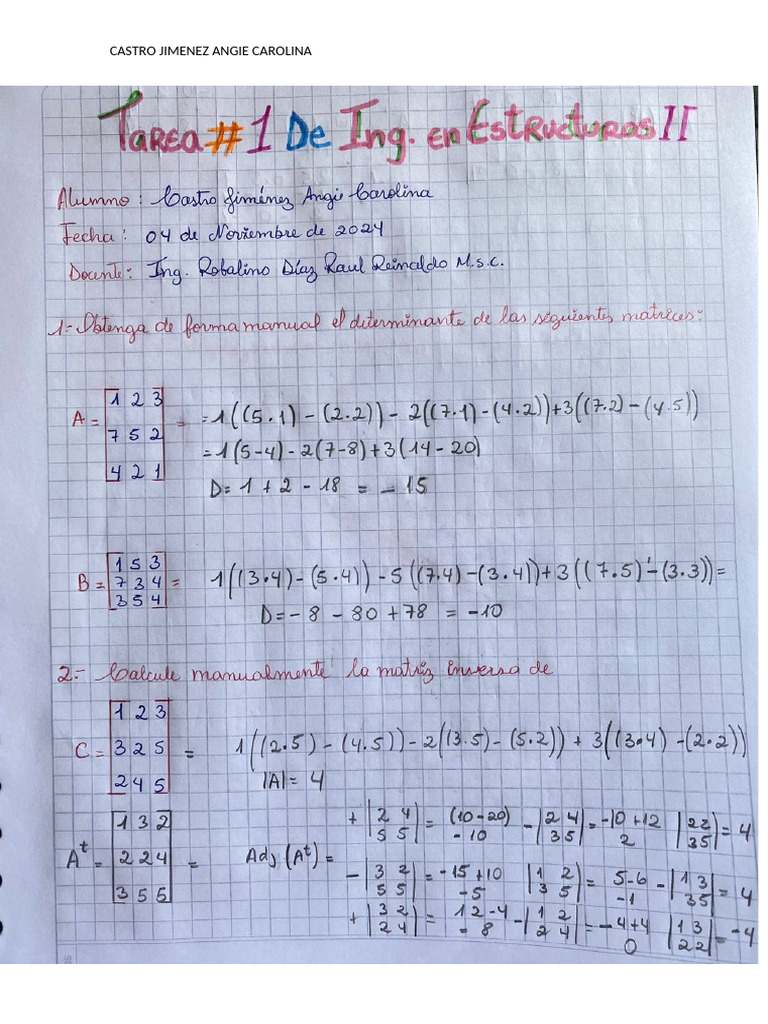 CASTRO JIMENEZ ANGIE CAROLINA
TAREA # 1 De Ing. en Estructuras II
Alumno: Castro Jiménez Angie Carolina
Fecha: 04 de Noviembre de 2024
Docente: Ing. Robalino Díaz Raul Reinaldo M.s.c.
1.- Obtenga de forma manual el determinante de las siguientes matrices:
1 2 3
A = 7 5 2 = = 1((5.1) - (2.2)) - 2((7.1) - (4.2)) + 3((7.2) - (4.5))
4 2 1
= 1(5-4) - 2(7-8) + 3(14-20)
D = 1 + 2 - 18 = - 15
1 5 3
B = 7 3 4 = 1((3.4) - (5.4)) - 5((7.4) - (3.4)) + 3((7.5) - (3.3)) =
3 5 4
D = - 8 - 80 + 78 = -10
2.- Calcule manualmente la matriz inversa de
1 2 3
C = 3 2 5 = 1((2.5) - (4.5)) - 2((3.5) - (5.2)) + 3((3.4) - (2.2))
2 4 5
|A| = 4
1 3 2
A^t = 2 2 4 = Adj (A^t) =
3 5 5
+ |2 4| = (10-20) - |2 4| = -10+12 |2 2| = 4
|5 5| - 10 |3 5| 2 |3 5|
- |3 2| = -15+10 |1 2| = 5-6 - |1 3| = 4
|5 5| -5 |3 5| -1 |3 5|
+ |3 2| = 12-4 - |1 2| = -4+4 |1 3| = -4
|2 4| - 8 |2 4| 0 |2 2|